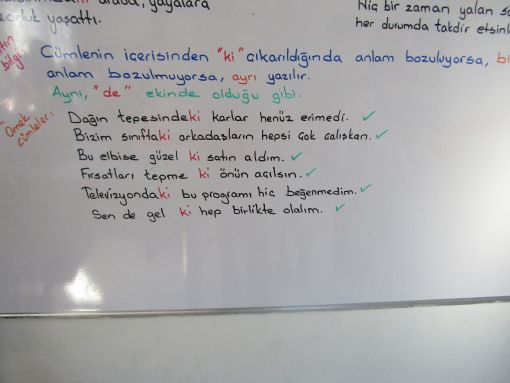 araba, yayalara
zorluk yaşattı.
Hiç bir zaman yalan
her durumda takdir
bilgi
Cümlenin içerisinden "ki" çıkarıldığında anlam bozuluyorsa,
anlam bozulmuyorsa, ayrı yazılır.
Aynı, "de" ekinde olduğu gibi.
Örnek cümleler:
Dağın tepesindeki karlar henüz erimedi. ✓
Bizim sınıftaki arkadaşların hepsi çok çalışkan. ✓
Bu elbise güzel ki satın aldım. ✓
Fırsatları tepme ki önün açılsın. ✓
Televizyondaki bu programı hiç beğenmedim. ✓
Sen de gel ki hep birlikte olalım. ✓